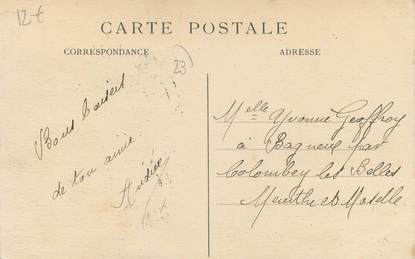 12 €
CARTE POSTALE
CORRESPONDANCE
ADRESSE
23
Bons baisers
de ton amie
Andrée
Melle Yvonne Geoffroy
à Bagneux par
Colombey les Belles
Meurthe et Moselle